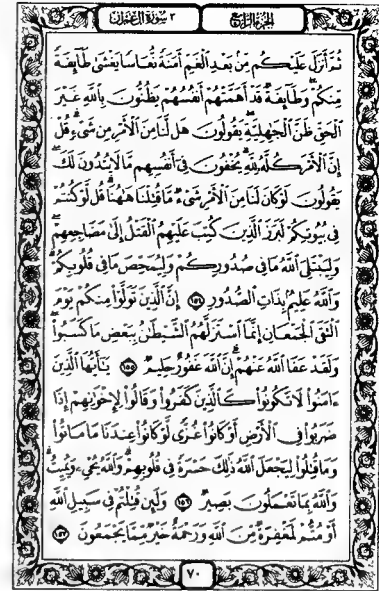 الجزء الرابع
٣ سورة آل عمران
ثُمَّ أَنزَلَ عَلَيْكُم مِّنۢ بَعْدِ ٱلْغَمِّ أَمَنَةً نُّعَاسًا يَغْشَىٰ طَآئِفَةً
مِّنكُمْ ۖ وَطَآئِفَةٌ قَدْ أَهَمَّتْهُمْ أَنفُسُهُمْ يَظُنُّونَ بِٱللَّهِ غَيْرَ
ٱلْحَقِّ ظَنَّ ٱلْجَٰهِلِيَّةِ ۖ يَقُولُونَ هَل لَّنَا مِنَ ٱلْأَمْرِ مِن شَىْءٍ ۗ قُلْ
إِنَّ ٱلْأَمْرَ كُلَّهُۥ لِلَّهِ ۗ يُخْفُونَ فِىٓ أَنفُسِهِم مَّا لَا يُبْدُونَ لَكَ ۖ
يَقُولُونَ لَوْ كَانَ لَنَا مِنَ ٱلْأَمْرِ شَىْءٌ مَّا قُتِلْنَا هَٰهُنَا ۗ قُل لَّوْ كُنتُمْ
فِى بُيُوتِكُمْ لَبَرَزَ ٱلَّذِينَ كُتِبَ عَلَيْهِمُ ٱلْقَتْلُ إِلَىٰ مَضَاجِعِهِمْ ۖ
وَلِيَبْتَلِىَ ٱللَّهُ مَا فِى صُدُورِكُمْ وَلِيُمَحِّصَ مَا فِى قُلُوبِكُمْ ۗ
وَٱللَّهُ عَلِيمٌۢ بِذَاتِ ٱلصُّدُورِ ١٥٤ إِنَّ ٱلَّذِينَ تَوَلَّوْا۟ مِنكُمْ يَوْمَ
ٱلْتَقَى ٱلْجَمْعَانِ إِنَّمَا ٱسْتَزَلَّهُمُ ٱلشَّيْطَٰنُ بِبَعْضِ مَا كَسَبُوا۟ ۖ
وَلَقَدْ عَفَا ٱللَّهُ عَنْهُمْ ۗ إِنَّ ٱللَّهَ غَفُورٌ حَلِيمٌ ١٥٥ يَٰٓأَيُّهَا ٱلَّذِينَ
ءَامَنُوا۟ لَا تَكُونُوا۟ كَٱلَّذِينَ كَفَرُوا۟ وَقَالُوا۟ لِإِخْوَٰنِهِمْ إِذَا
ضَرَبُوا۟ فِى ٱلْأَرْضِ أَوْ كَانُوا۟ غُزًّى لَّوْ كَانُوا۟ عِندَنَا مَا مَاتُوا۟
وَمَا قُتِلُوا۟ لِيَجْعَلَ ٱللَّهُ ذَٰلِكَ حَسْرَةً فِى قُلُوبِهِمْ ۗ وَٱللَّهُ يُحْىِۦ وَيُمِيتُ ۗ
وَٱللَّهُ بِمَا تَعْمَلُونَ بَصِيرٌ ١٥٦ وَلَئِن قُتِلْتُمْ فِى سَبِيلِ ٱللَّهِ
أَوْ مُتُّمْ لَمَغْفِرَةٌ مِّنَ ٱللَّهِ وَرَحْمَةٌ خَيْرٌ مِّمَّا يَجْمَعُونَ ١٥٧
٧٠